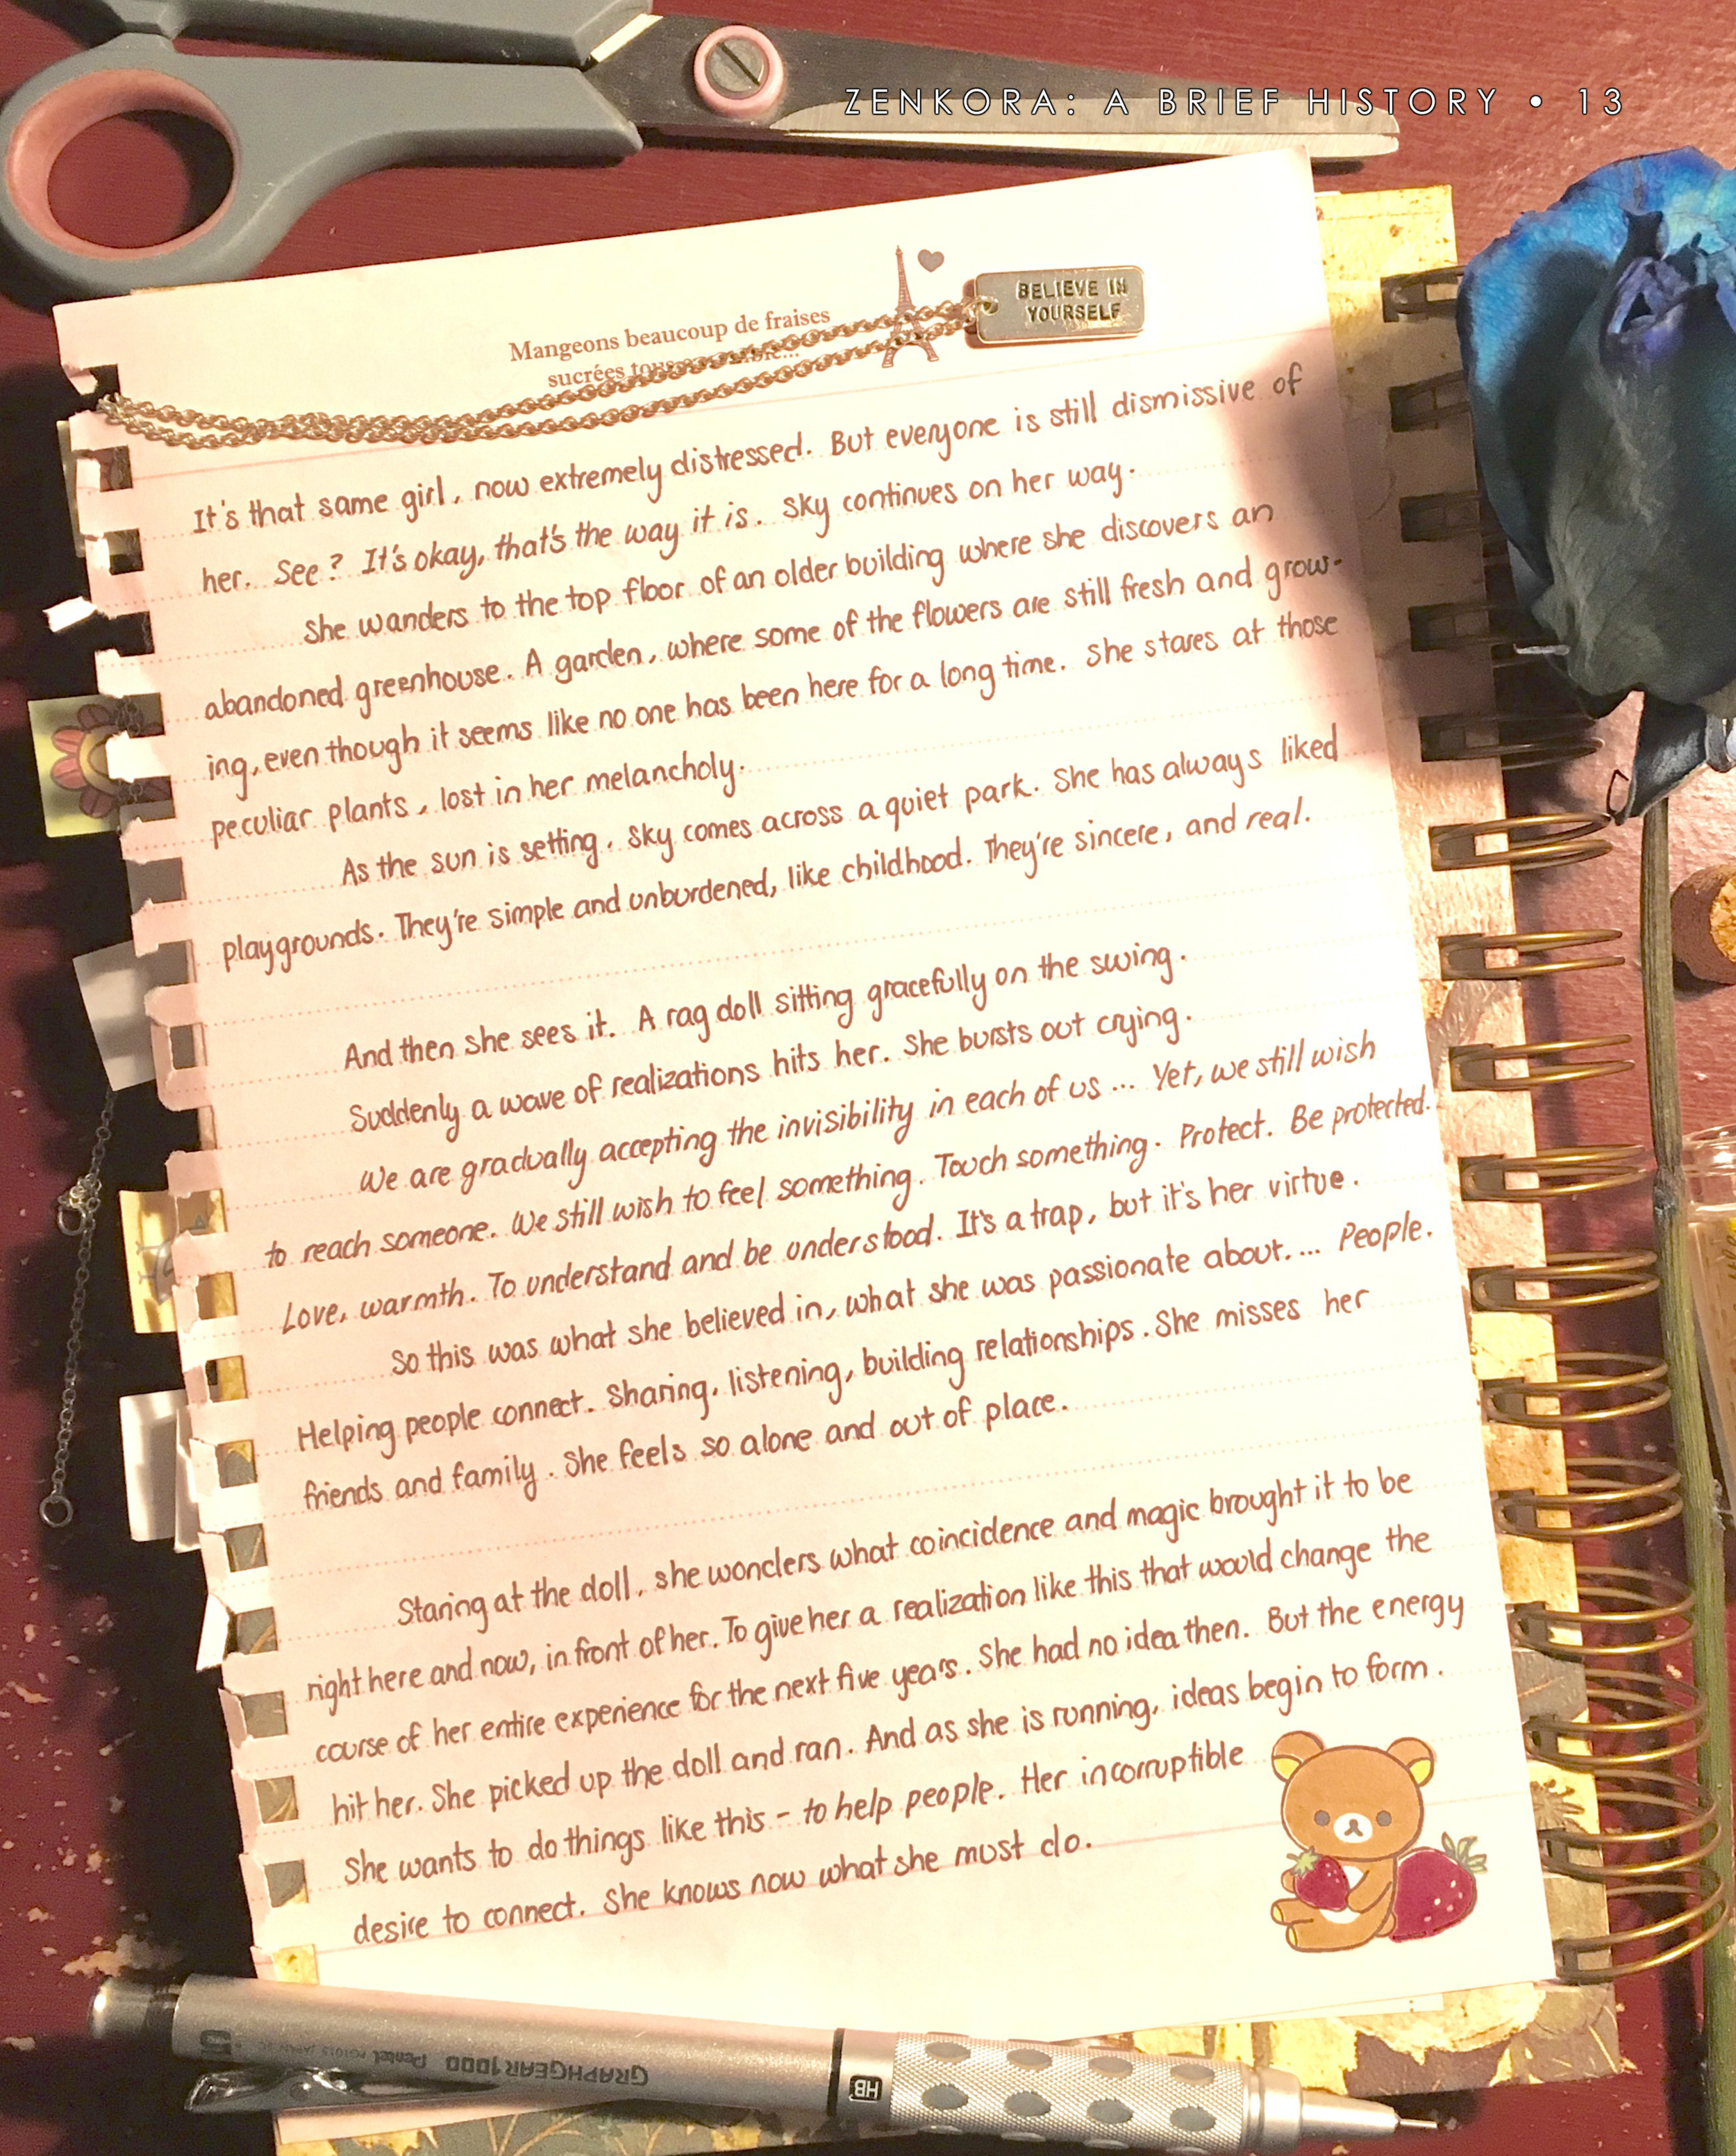 ZENKORA: A BRIEF HISTORY • 13
BELIEVE IN
YOURSELF
Mangeons beaucoup de fraises
sucrées
It's that same girl, now extremely distressed. But everyone is still dismissive of
her. See? It's okay, that's the way it is. Sky continues on her way.
She wanders to the top floor of an older building where she discovers an
abandoned greenhouse. A garden, where some of the flowers are still fresh and grow-
ing, even though it seems like no one has been here for a long time. She stares at those
peculiar plants, lost in her melancholy.
As the sun is setting, Sky comes across a quiet park. She has always liked
playgrounds. They're simple and unburdened, like childhood. They're sincere, and real.
And then she sees it. A rag doll sitting gracefully on the swing.
Suddenly a wave of realizations hits her. She bursts out crying.
We are gradually accepting the invisibility in each of us ... Yet, we still wish
to reach someone. We still wish to feel something. Touch something. Protect. Be protected.
Love, warmth. To understand and be understood. It's a trap, but it's her virtue.
So this was what she believed in, what she was passionate about. ... People.
Helping people connect. Sharing, listening, building relationships. She misses her
friends and family. She feels so alone and out of place.
Staring at the doll, she wonders what coincidence and magic brought it to be
right here and now, in front of her. To give her a realization like this that would change the
course of her entire experience for the next five years. She had no idea then. But the energy
hit her. She picked up the doll and ran. And as she is running, ideas begin to form.
She wants to do things like this - to help people. Her incorruptible
desire to connect. She knows now what she must do.
GRAPHGEAR 1000 Pentel
HB